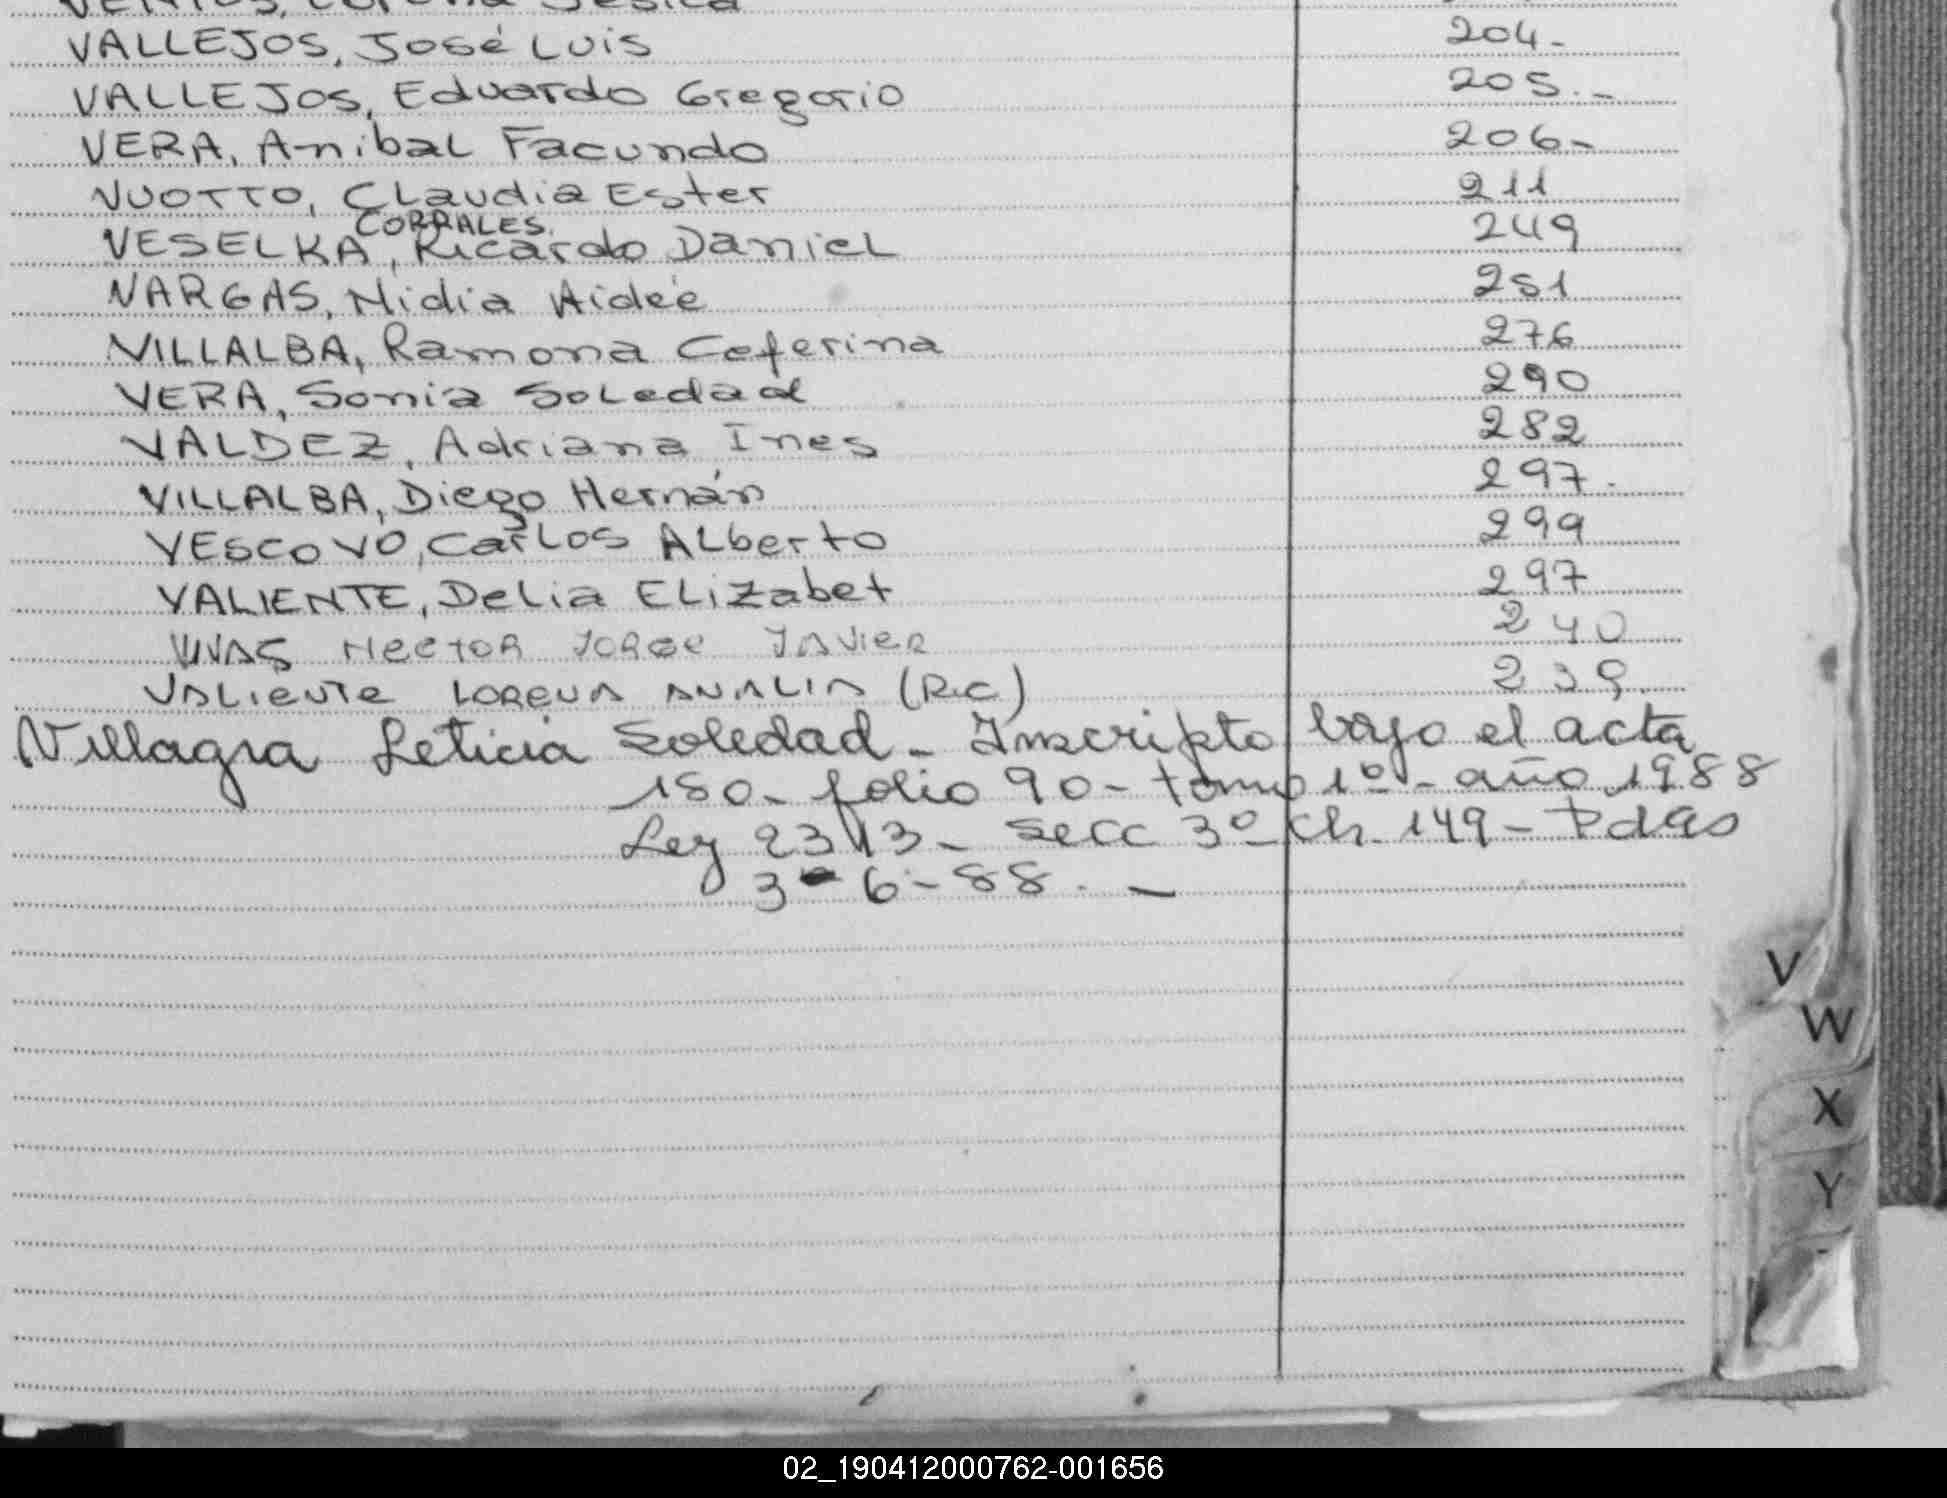 VALLEJOS, José Luis 204-
VALLEJOS, Eduardo Gregorio 205.-
VERA, Anibal Facundo 206-
VUOTTO, Claudia Ester 211
CORRALES.
VESELKA, Ricardo Daniel 249
VARGAS, Nidia Aideé 251
VILLALBA, Ramona Ceferina 276
VERA, Sonia Soledad 290
VALDEZ, Adriana Ines 282
VILLALBA, Diego Hernán 297.
VESCOVO, Carlos Alberto 299
VALIENTE, Delia Elizabet 297
VIVAS HECTOR JORGE JAVIER 240
VALIENTE LORENA ANALIA (R.C) 239.
Villagra Leticia Soledad - Inscripto bajo el acta
180 - folio 90 - tomo 1º - año 1988
Ley 23413 - Secc 3º Ch. 149 - Pdas
3-6-88. -
V
W
X
Y
02_190412000762-001656